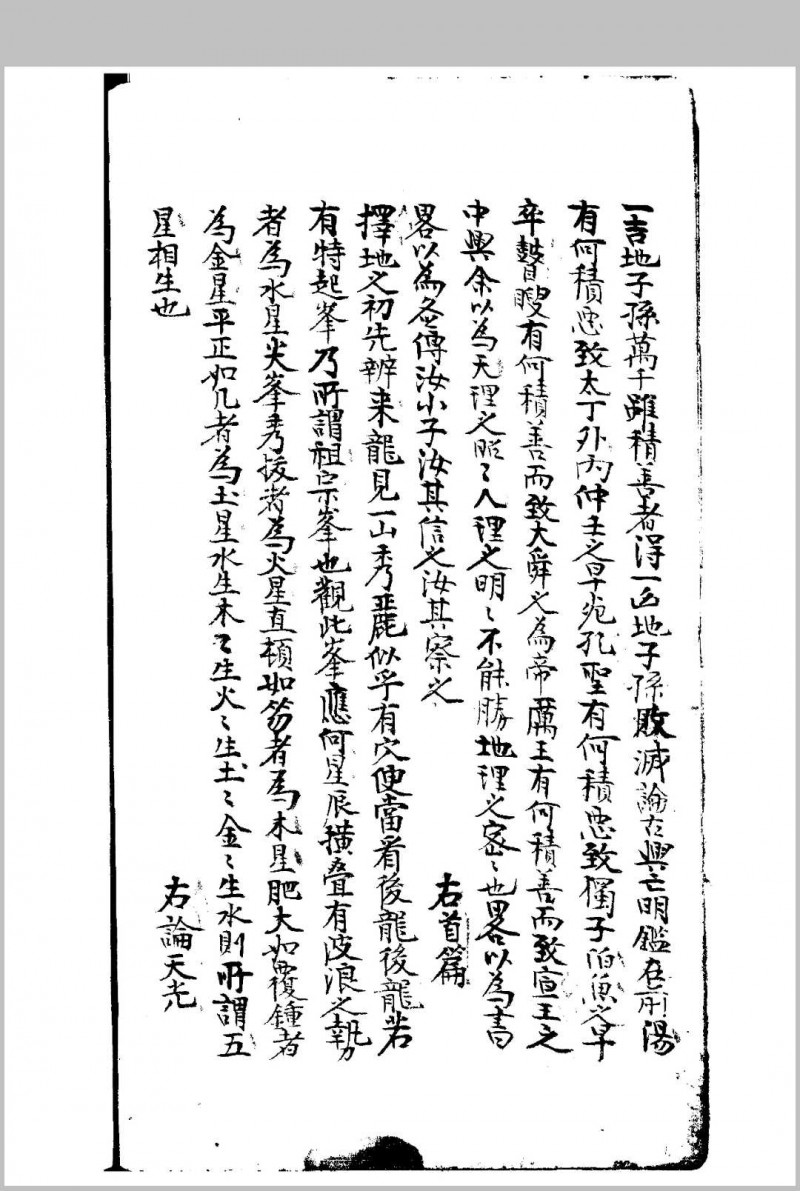 一吉地子孫萬千雖積善者得一凶地子孫敗滅論古興亡明鑑在前湯
有何積惡致太丁外丙仲壬之早死孔聖有何積惡致獨子伯魚之早
卒瞽瞍有何積善而致大舜之為帝厲王有何積善而致宣王之
中興余以為天理之昭〻人理之明〻不能勝地理之密〻也畧以為書
畧以為名傳汝小子汝其信之汝其察之
右首篇
擇地之初先辨来龍見一山秀麗似乎有穴便當看後龍後龍若
有特起峯乃所謂祖宗峯也觀此峯應何星辰橫疊有波浪之勢
者為水星尖峯秀拔者為火星直頓如笏者為木星肥大如覆鍾者
為金星平正如几者為土星水生木〻生火〻生土〻金〻生水則所謂五
星相生也
右論天光